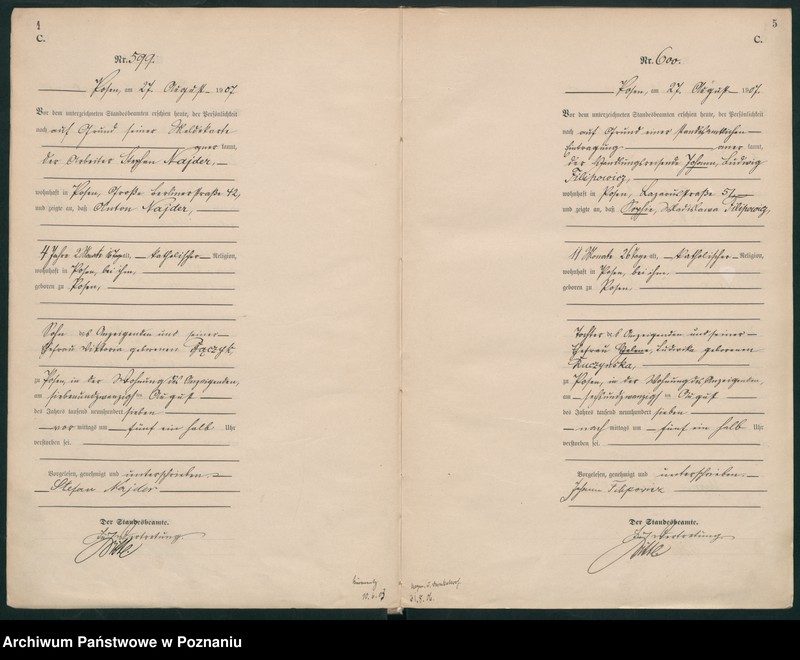 4
C.
Nr. 599.
Posen, am 27. August 1907
Vor dem unterzeichneten Standesbeamten erschien heute, der Persönlichkeit
nach auf Grund seiner Meldekarte
kannt,
der Arbeiter Stephan Najder,
wohnhaft in Posen, Große Berlinerstraße 42,
und zeigte an, daß Anton Najder,
4 Jahre 2 Monate alt, katholischer Religion,
wohnhaft in Posen, bei ihm,
geboren zu Posen,
Sohn des Anzeigenden und seiner
Ehefrau Viktoria geborenen Pączyk,
zu Posen, in der Wohnung des Anzeigenden,
am siebenundzwanzigsten August
des Jahres tausend neunhundert sieben
vor mittags um fünf ein halb Uhr
verstorben sei.
Vorgelesen, genehmigt und unterschrieben.
Stefan Najder
Der Standesbeamte.
In Vertretung
5
C.
Nr. 600.
Posen, am 27. August 1907.
Vor dem unterzeichneten Standesbeamten erschien heute, der Persönlichkeit
nach auf Grund einer standesamtlichen
Eintragung anerkannt,
der Johann, Ludwig
Filipowicz,
wohnhaft in Posen, Lazarusstraße 5
und zeigte an, daß Sophie, Wladislawa Filipowicz,
11 Monate 26 Tage alt, katholischer Religion,
wohnhaft in Posen, bei ihm
geboren zu Posen,
Tochter des Anzeigenden und seiner
Ehefrau Helene, Ludwika geborenen
Kuczyńska,
zu Posen, in der Wohnung des Anzeigenden,
am sechsundzwanzigsten August
des Jahres tausend neunhundert sieben
nach mittags um fünf ein halb Uhr
verstorben sei.
Vorgelesen, genehmigt und unterschrieben.
Johann Filipowicz
Der Standesbeamte.
In Vertretung
Archiwum Państwowe w Poznaniu